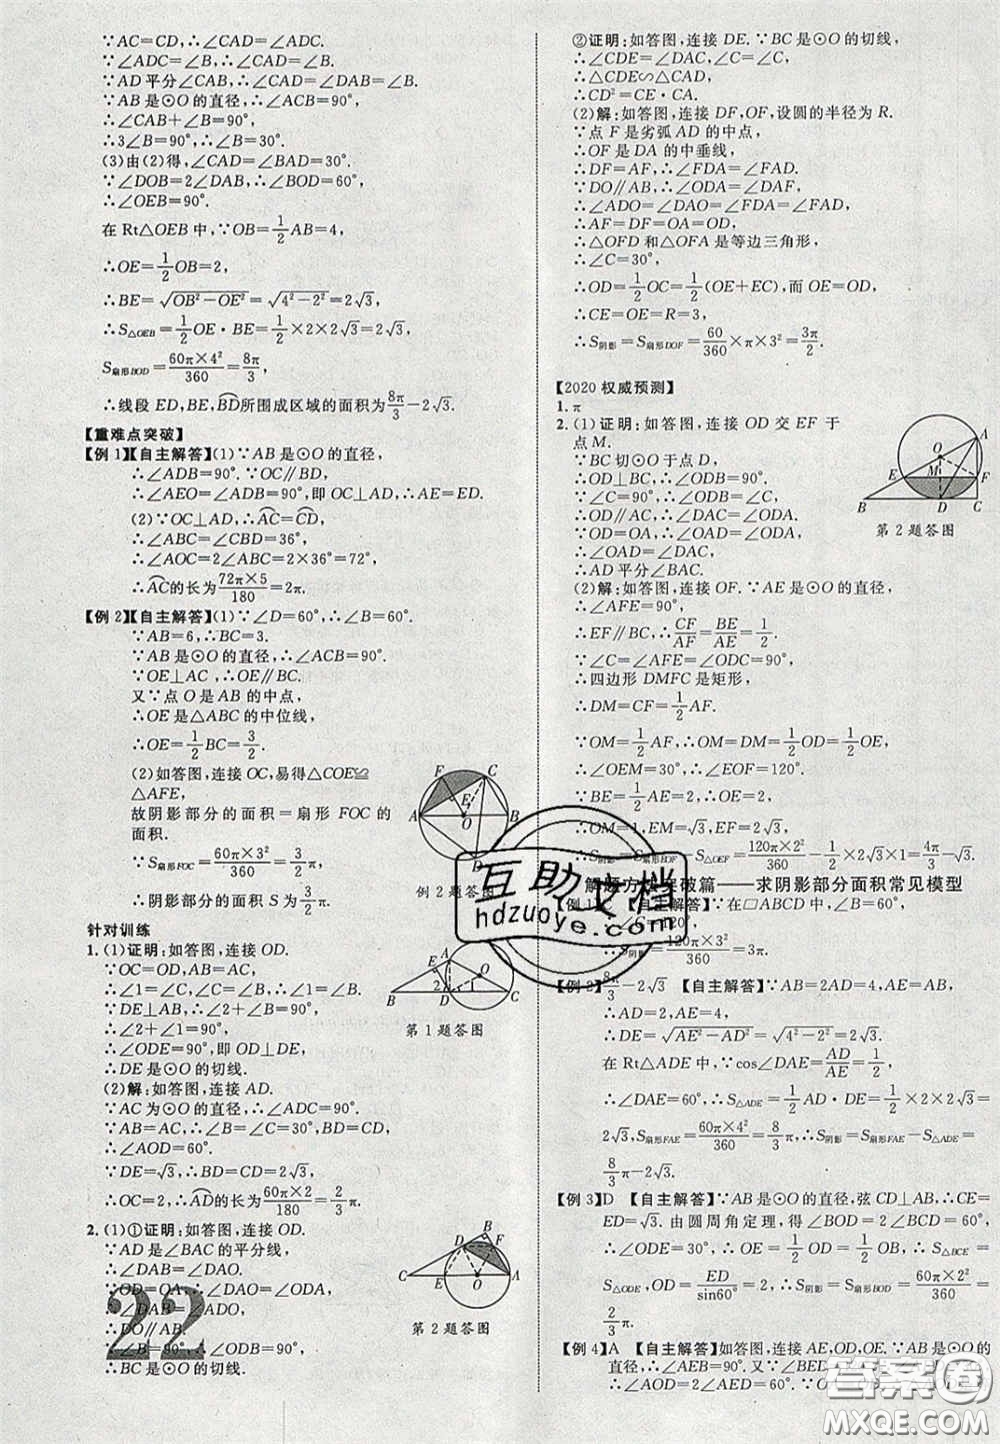 ∵AC=CD,∴∠CAD=∠ADC.
∵∠ADC=∠B,∴∠CAD=∠B.
∵AD平分∠CAB,∴∠CAD=∠DAB=∠B.
∵AB是⊙O的直径,∴∠ACB=90°,
∴∠CAB+∠B=90°,
∴3∠B=90°,∴∠B=30°.
(3)由(2)得,∠CAD=∠DAB=30°.
∵∠DOB=2∠DAB,∴∠BOD=60°,
∴∠OEB=90°.
在Rt△OEB中,∵OB=1/2AB=4,
∴OE=1/2OB=2,
∴BE=√(OB²-OE²)=√(4²-2²)=2√3,
∴S△OEB=1/2OE·BE=1/2×2×2√3=2√3,
S扇形BOD=60π×4²/360=8π/3,
∴线段ED,BE,BD所围成区域的面积为8π/3-2√3.
【重难点突破】
【例1】【自主解答】(1)∵AB是⊙O的直径,
∴∠ADB=90°.∵OC∥BD,
∴∠AEO=∠ADB=90°,即OC⊥AD,∴AE=ED.
(2)∵OC⊥AD,∴AC=CD,
∴∠ABC=∠CBD=36°,
∴∠AOC=2∠ABC=2×36°=72°,
∴AC的长为72π×5/180=2π.
【例2】【自主解答】(1)∵∠D=60°,∴∠B=60°.
∵AB=6,∴BC=3.
∵AB是⊙O的直径,∴∠ACB=90°.
∵OE⊥AC,∴OE∥BC.
又∵点O是AB的中点,
∴OE是△ABC的中位线,
∴OE=1/2BC=3/2.
(2)如答图,连接OC,易得△COE≌
△AFE,
故阴影部分的面积=扇形FOC的
面积.
∵S扇形FOC=60π×3²/360=3π/2,
∴阴影部分的面积S为3π/2.
F C E A O B D
例2题答图
针对训练
1.(1)证明:如答图,连接OD.
∵OC=OD,AB=AC,
∴∠1=∠C,∠C=∠B,∴∠1=∠B.
∵DE⊥AB,∴∠2+∠B=90°,
∴∠2+∠1=90°,
∴∠ODE=90°,即OD⊥DE,
∴DE是⊙O的切线.
(2)解:如答图,连接AD.
∵AC为⊙O的直径,∴∠ADC=90°.
∵AB=AC,∴∠B=∠C=30°,
∴∠AOD=60°.
∵DE=√3,∴BD=CD=2√3,
∴OC=2,∴AD的长=60π×2/180=2/3π.
A E O 2 1 B D C
第1题答图
2.(1)①证明:如答图,连接OD.
∵AD是∠BAC的平分线,
∴∠DAB=∠DAO.
∵OD=OA,∴∠DAO=∠ODA,
∴∠DAB=∠ADO,
∴DO∥AB.
∵∠B=90°,∴∠ODB=90°,
∴BC是⊙O的切线.
B D F C E O A
第2题答图
22
②证明:如答图,连接DE.∵BC是⊙O的切线,
∴∠CDE=∠DAC,∠C=∠C,
∴△CDE∽△CAD,
∴CD²=CE·CA.
(2)解:如答图,连接DF,OF,设圆的半径为R.
∵点F是劣弧AD的中点,
∴OF是DA的中垂线,
∴DF=AF,∴∠FDA=∠FAD.
∵DO∥AB,∴∠ODA=∠DAF,
∴∠ADO=∠DAO=∠FDA=∠FAD,
∴AF=DF=OA=OD,
∴△OFD和△OFA是等边三角形,
∴∠C=30°,
∴OD=1/2OC=1/2(OE+EC),而OE=OD,
∴CE=OE=R=3,
∴S阴影=S扇形DOF=60/360×π×3²=3π/2.
【2020权威预测】
1.π
2.(1)证明:如答图,连接OD交EF于
点M.
∵BC切⊙O于点D,
∴OD⊥BC,∴∠ODB=90°.
∵∠C=90°,∴∠ODB=∠C,
∴OD∥AC,∴∠ODA=∠DAC.
∵OD=OA,
∴∠OAD=∠ODA,
∴∠OAD=∠DAC,
∴AD平分∠BAC.
A O M E F B D C
第2题答图
(2)解:如答图,连接OF.∵AE是⊙O的直径,
∴∠AFE=90°,
∴EF∥BC,∴CF/AF=BE/AE=1/2.
∵∠C=∠AFE=∠ODC=90°,
∴四边形DMFC是矩形,
∴DM=CF=1/2AF.
∵OM=1/2AF,∴OM=DM=1/2OD=1/2OE,
∴∠OEM=30°,∴∠EOF=120°.
∵BE=1/2AE=2,∴OE=2,
∴OM=1,EM=√3,∴EF=2√3,
∴S阴影=S扇形EOF-S△OEF=120π×2²/360-1/2×2√3×1=4π/3-√3.
解题方法突破篇——求阴影部分面积常见模型
【例1】C 【自主解答】∵在□ABCD中,∠B=60°,
∴∠C=120°,
∴S阴影=120π×3²/360=3π.
【例2】8π/3-2√3 【自主解答】∵AB=2AD=4,AE=AB,
∴AD=2,AE=4,
∴DE=√(AE²-AD²)=√(4²-2²)=2√3.
在Rt△ADE中,∵cos∠DAE=AD/AE=1/2,
∴∠DAE=60°,∴S△ADE=1/2AD·DE=1/2×2×2√3=
2√3,S扇形FAE=60π×4²/360=8/3π,∴S阴影=S扇形FAE-S△ADE=
8/3π-2√3.
【例3】D 【自主解答】∵AB是⊙O的直径,弦CD⊥AB,∴CE=
ED=√3.由圆周角定理,得∠BOD=2∠BCD=60°,
∴∠ODE=30°,∴OE=1/2OD=1/2OB,∴S△BCE=
S△ODE,OD=ED/sin60°=2,∴S阴影=S扇形BOD=60π×2²/360=
2/3π.
【例4】A 【自主解答】如答图,连接AE,OD,OE.∵AB是⊙O的
直径,∴∠AEB=90°.又∵∠BED
∴∠AOD=2∠AED=60°.
互助文档
hdzuoye.com
答案圈
MXQE.COM